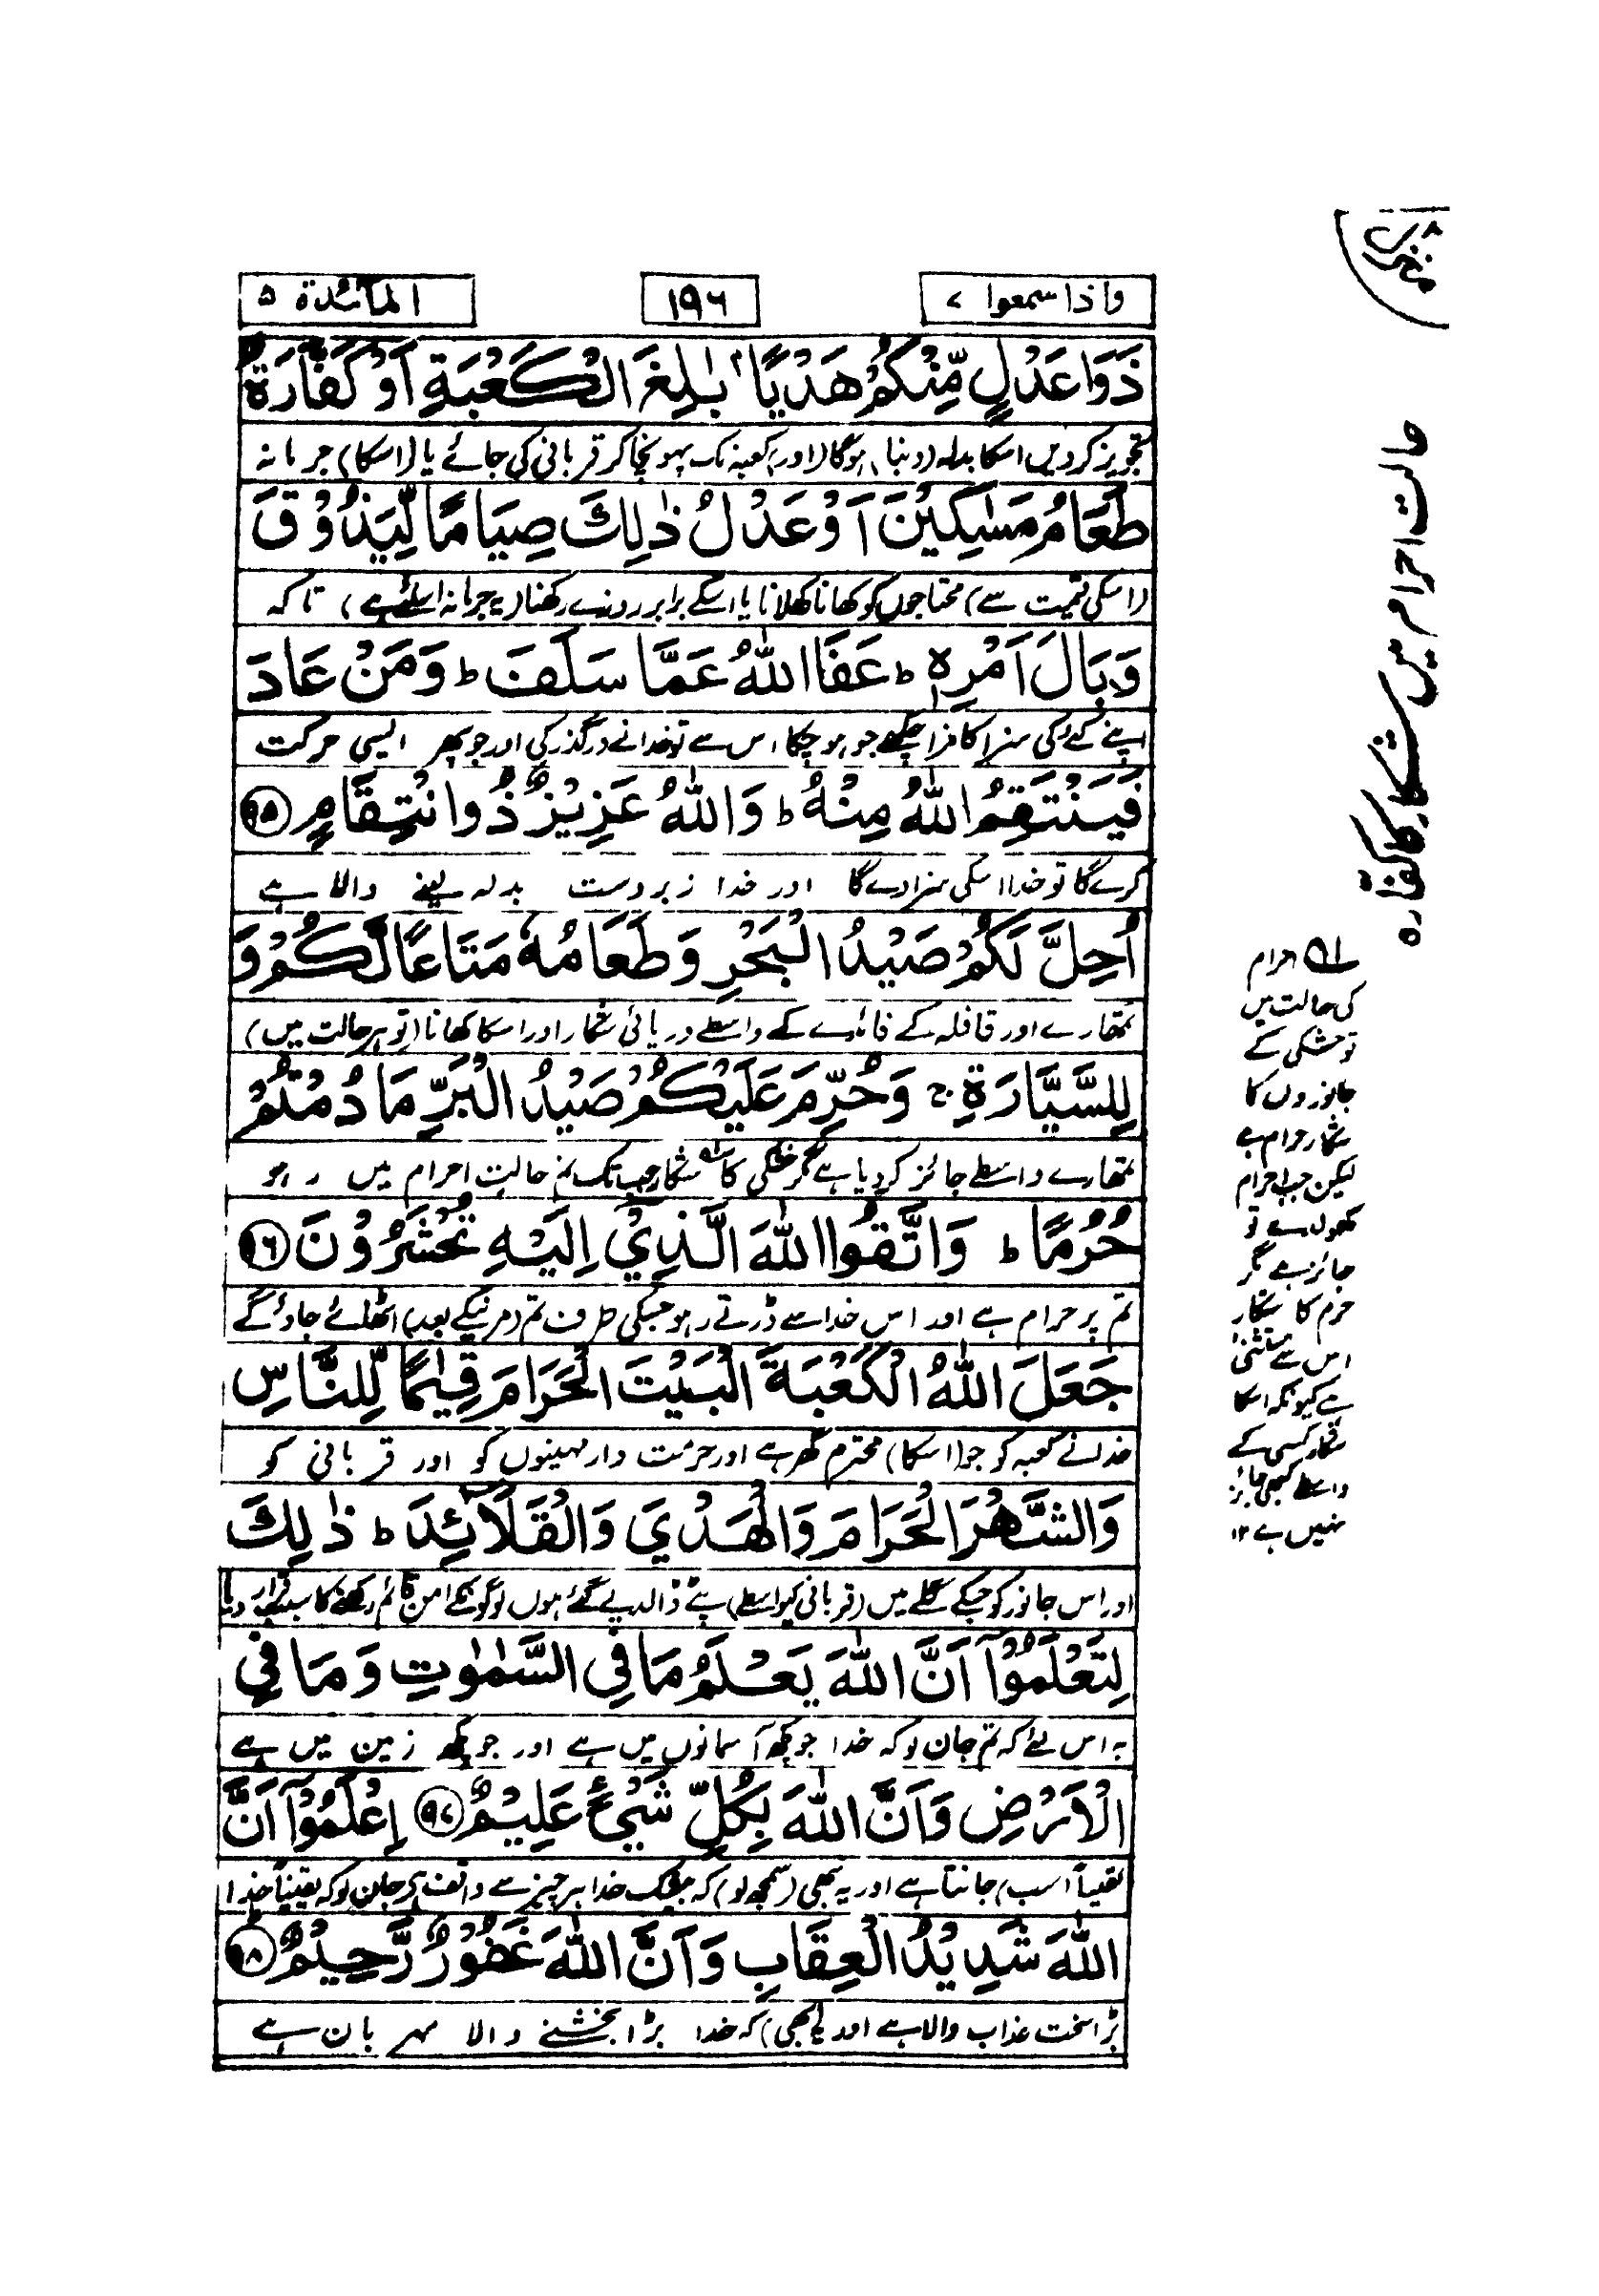 واذا سمعوا ۷
۱۹۶
المآئدة ۵
ذَوَا عَدْلٍ مِّنْكُمْ هَدْيًاۢ بٰلِغَ الْكَعْبَةِ اَوْ كَفَّارَةٌ
تجویز کردیں اسکا بدلہ (دینا) ہوگا (اور) کعبہ تک پہونچا کر قربانی کی جائے یا (اسکا) جرمانہ
طَعَامُ مَسٰكِيْنَ اَوْ عَدْلُ ذٰلِكَ صِيَامًا لِّيَذُوْقَ
(اسکی قیمت سے) محتاجوں کو کھانا کھلانا یا اسکے برابر روزے رکھنا (یہ جرمانہ اسلئے ہے) تاکہ
وَبَالَ اَمْرِهٖ ط عَفَا اللّٰهُ عَمَّا سَلَفَ ط وَمَنْ عَادَ
اپنے کئے کی سزا کا مزا چکھے جو ہو چکا اس سے تو خدا نے درگذر کی اور جو پھر ایسی حرکت
فَيَنْتَقِمُ اللّٰهُ مِنْهُ ط وَاللّٰهُ عَزِيْزٌ ذُو انْتِقَامٍ ۹۵
کرے گا تو خدا اسکی سزا دے گا اور خدا زبردست بدلہ لینے والا ہے
اُحِلَّ لَكُمْ صَيْدُ الْبَحْرِ وَطَعَامُهٗ مَتَاعًا لَّكُمْ وَ
تمھارے اور قافلہ کے فائدے کے واسطے دریائی شکار اور اسکا کھانا (تو ہر حالت میں)
لِلسَّيَّارَةِ ج وَحُرِّمَ عَلَيْكُمْ صَيْدُ الْبَرِّ مَا دُمْتُمْ
تمھارے واسطے جائز کردیا ہے مگر خشکی کا شکار جب تک تم حالتِ احرام میں رہو
حُرُمًا ط وَاتَّقُوا اللّٰهَ الَّذِيْٓ اِلَيْهِ تُحْشَرُوْنَ ۹۶
تم پر حرام ہے اور اس خدا سے ڈرتے رہو جسکی طرف تم (مرنیکے بعد) اٹھائے جاؤگے
جَعَلَ اللّٰهُ الْكَعْبَةَ الْبَيْتَ الْحَرَامَ قِيٰمًا لِّلنَّاسِ
خدا نے کعبہ کو جو (اسکا) محترم گھر ہے اور حرمت دار مہینوں کو اور قربانی کو
وَالشَّهْرَ الْحَرَامَ وَالْهَدْيَ وَالْقَلَآئِدَ ط ذٰلِكَ
اور اس جانور کو جسکے گلے میں (قربانی کیواسطے) پٹے ڈالدیے گئے ہوں لوگونکے امن قائم رکھنے کا سبب قرار دیا
لِتَعْلَمُوْٓا اَنَّ اللّٰهَ يَعْلَمُ مَا فِي السَّمٰوٰتِ وَمَا فِي
یہ اس لئے کہ تم جان لو کہ خدا جو کچھ آسمانوں میں ہے اور جو کچھ زمین میں ہے
الْاَرْضِ وَاَنَّ اللّٰهَ بِكُلِّ شَيْءٍ عَلِيْمٌ ۹۷ اِعْلَمُوْٓا اَنَّ
یقیناً (سب) جانتا ہے اور یہ بھی (سمجھ لو) کہ بیشک خدا ہر چیز سے واقف ہے جان لو کہ یقیناً خدا
اللّٰهَ شَدِيْدُ الْعِقَابِ وَاَنَّ اللّٰهَ غَفُوْرٌ رَّحِيْمٌ ۹۸
بڑا سخت عذاب والا ہے اور (یہ بھی) کہ خدا بڑا بخشنے والا مہربان ہے
حالت احرام میں شکار کا کفارہ
احرام
کی حالت میں
تو خشکی کے
جانوروں کا
شکار حرام ہے
لیکن جب احرام
کھول دے تو
جائز ہے مگر
حرم کا شکار
اس سے مستثنیٰ
ہے کیونکہ اسکا
شکار کسی کے
واسطے کبھی جائز
نہیں ہے ۱۲